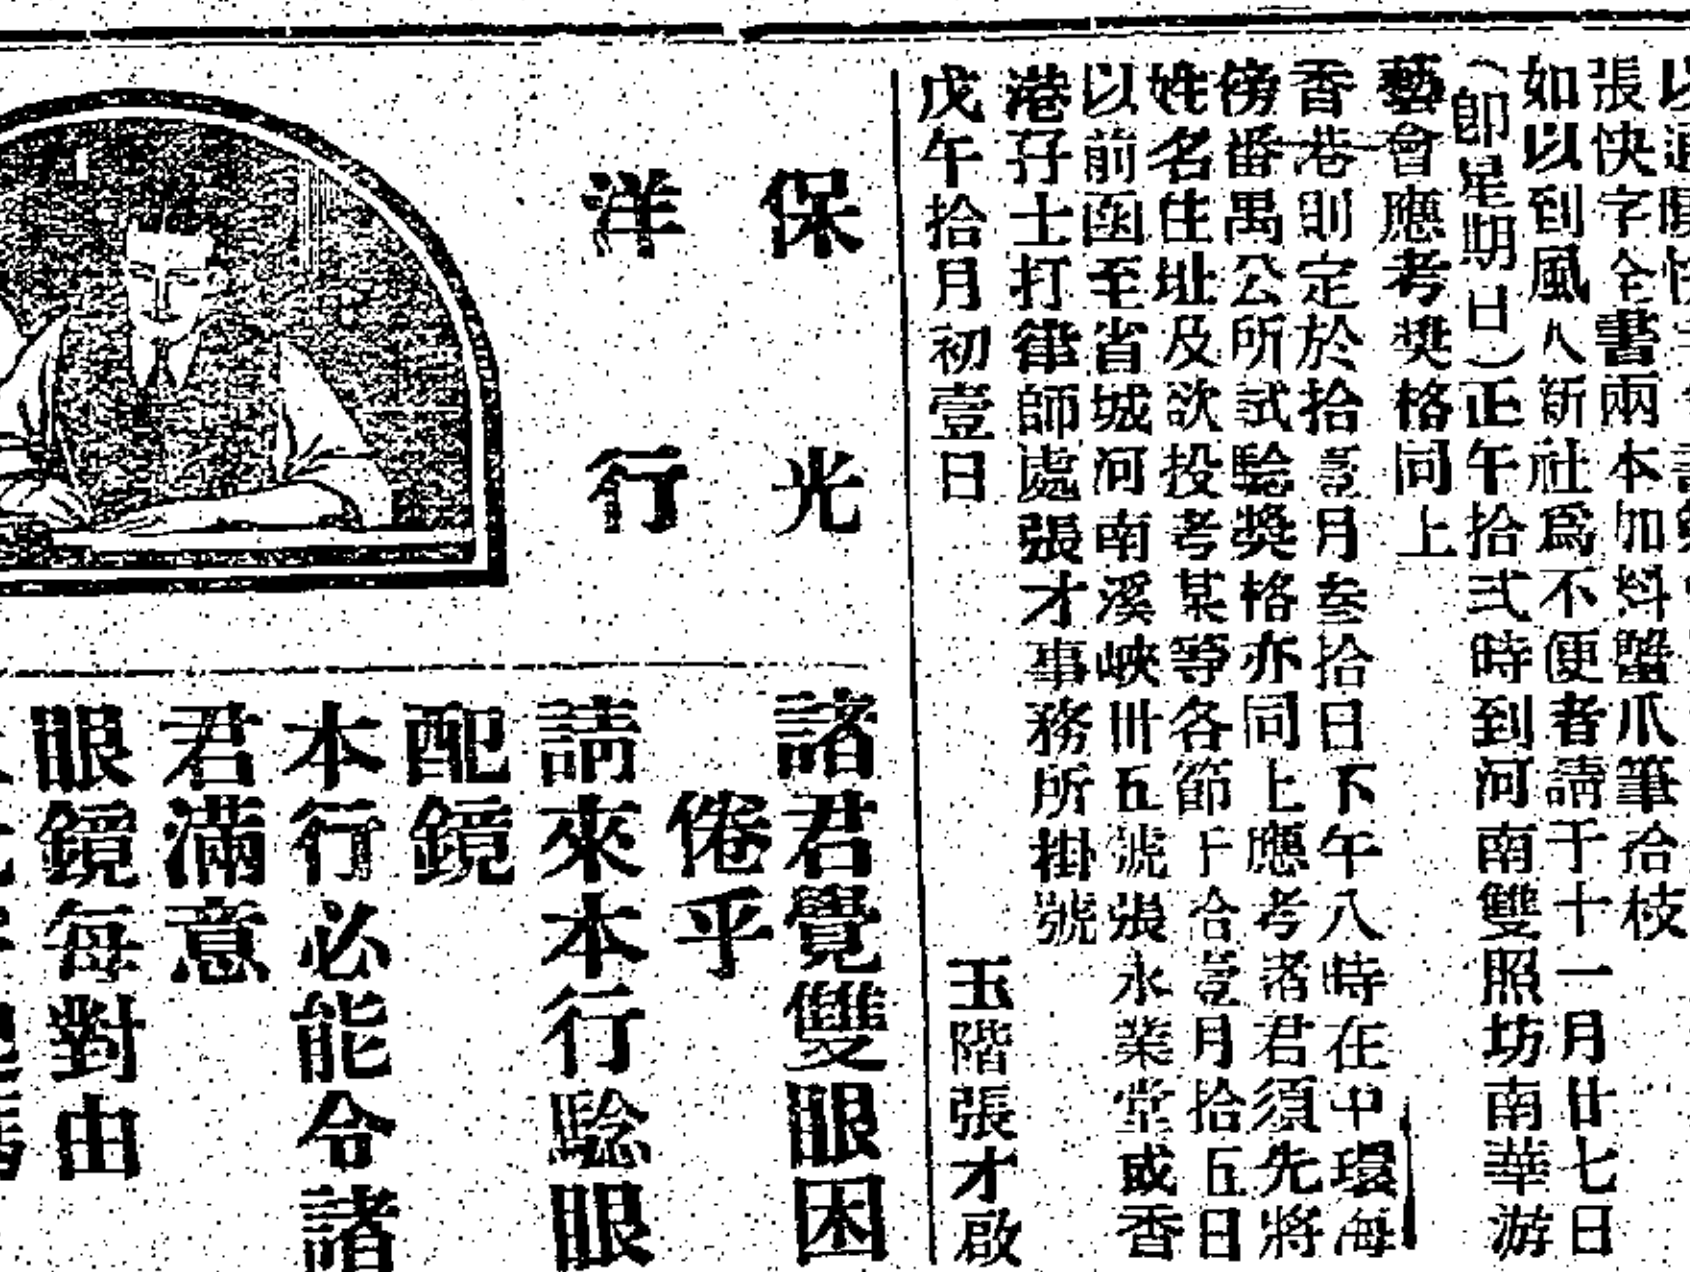 張快字全書兩本加料蟹爪筆拾枝
如以到風人新社爲不便者請于十一月廿七日
（卽星期日）正午拾弍時到河南雙照坊南華游
藝會應考奬格同上
香港則定於拾壹月叁拾日下午八時在中環海
傍番禺公所試騐奬格亦同上應考者諸君須先將
姓名住址及欲投考某等各節于合壹月拾五日
以前函至省城河南溪峽卌五號張永業堂或香
港孖士打律師處張才事務所掛號
戊午拾月初壹日
玉階張才啟
保光
洋行
諸君覺雙眼困
倦乎
請來本行騐眼
配鏡
本行必能令諸
君滿意
眼鏡每對由